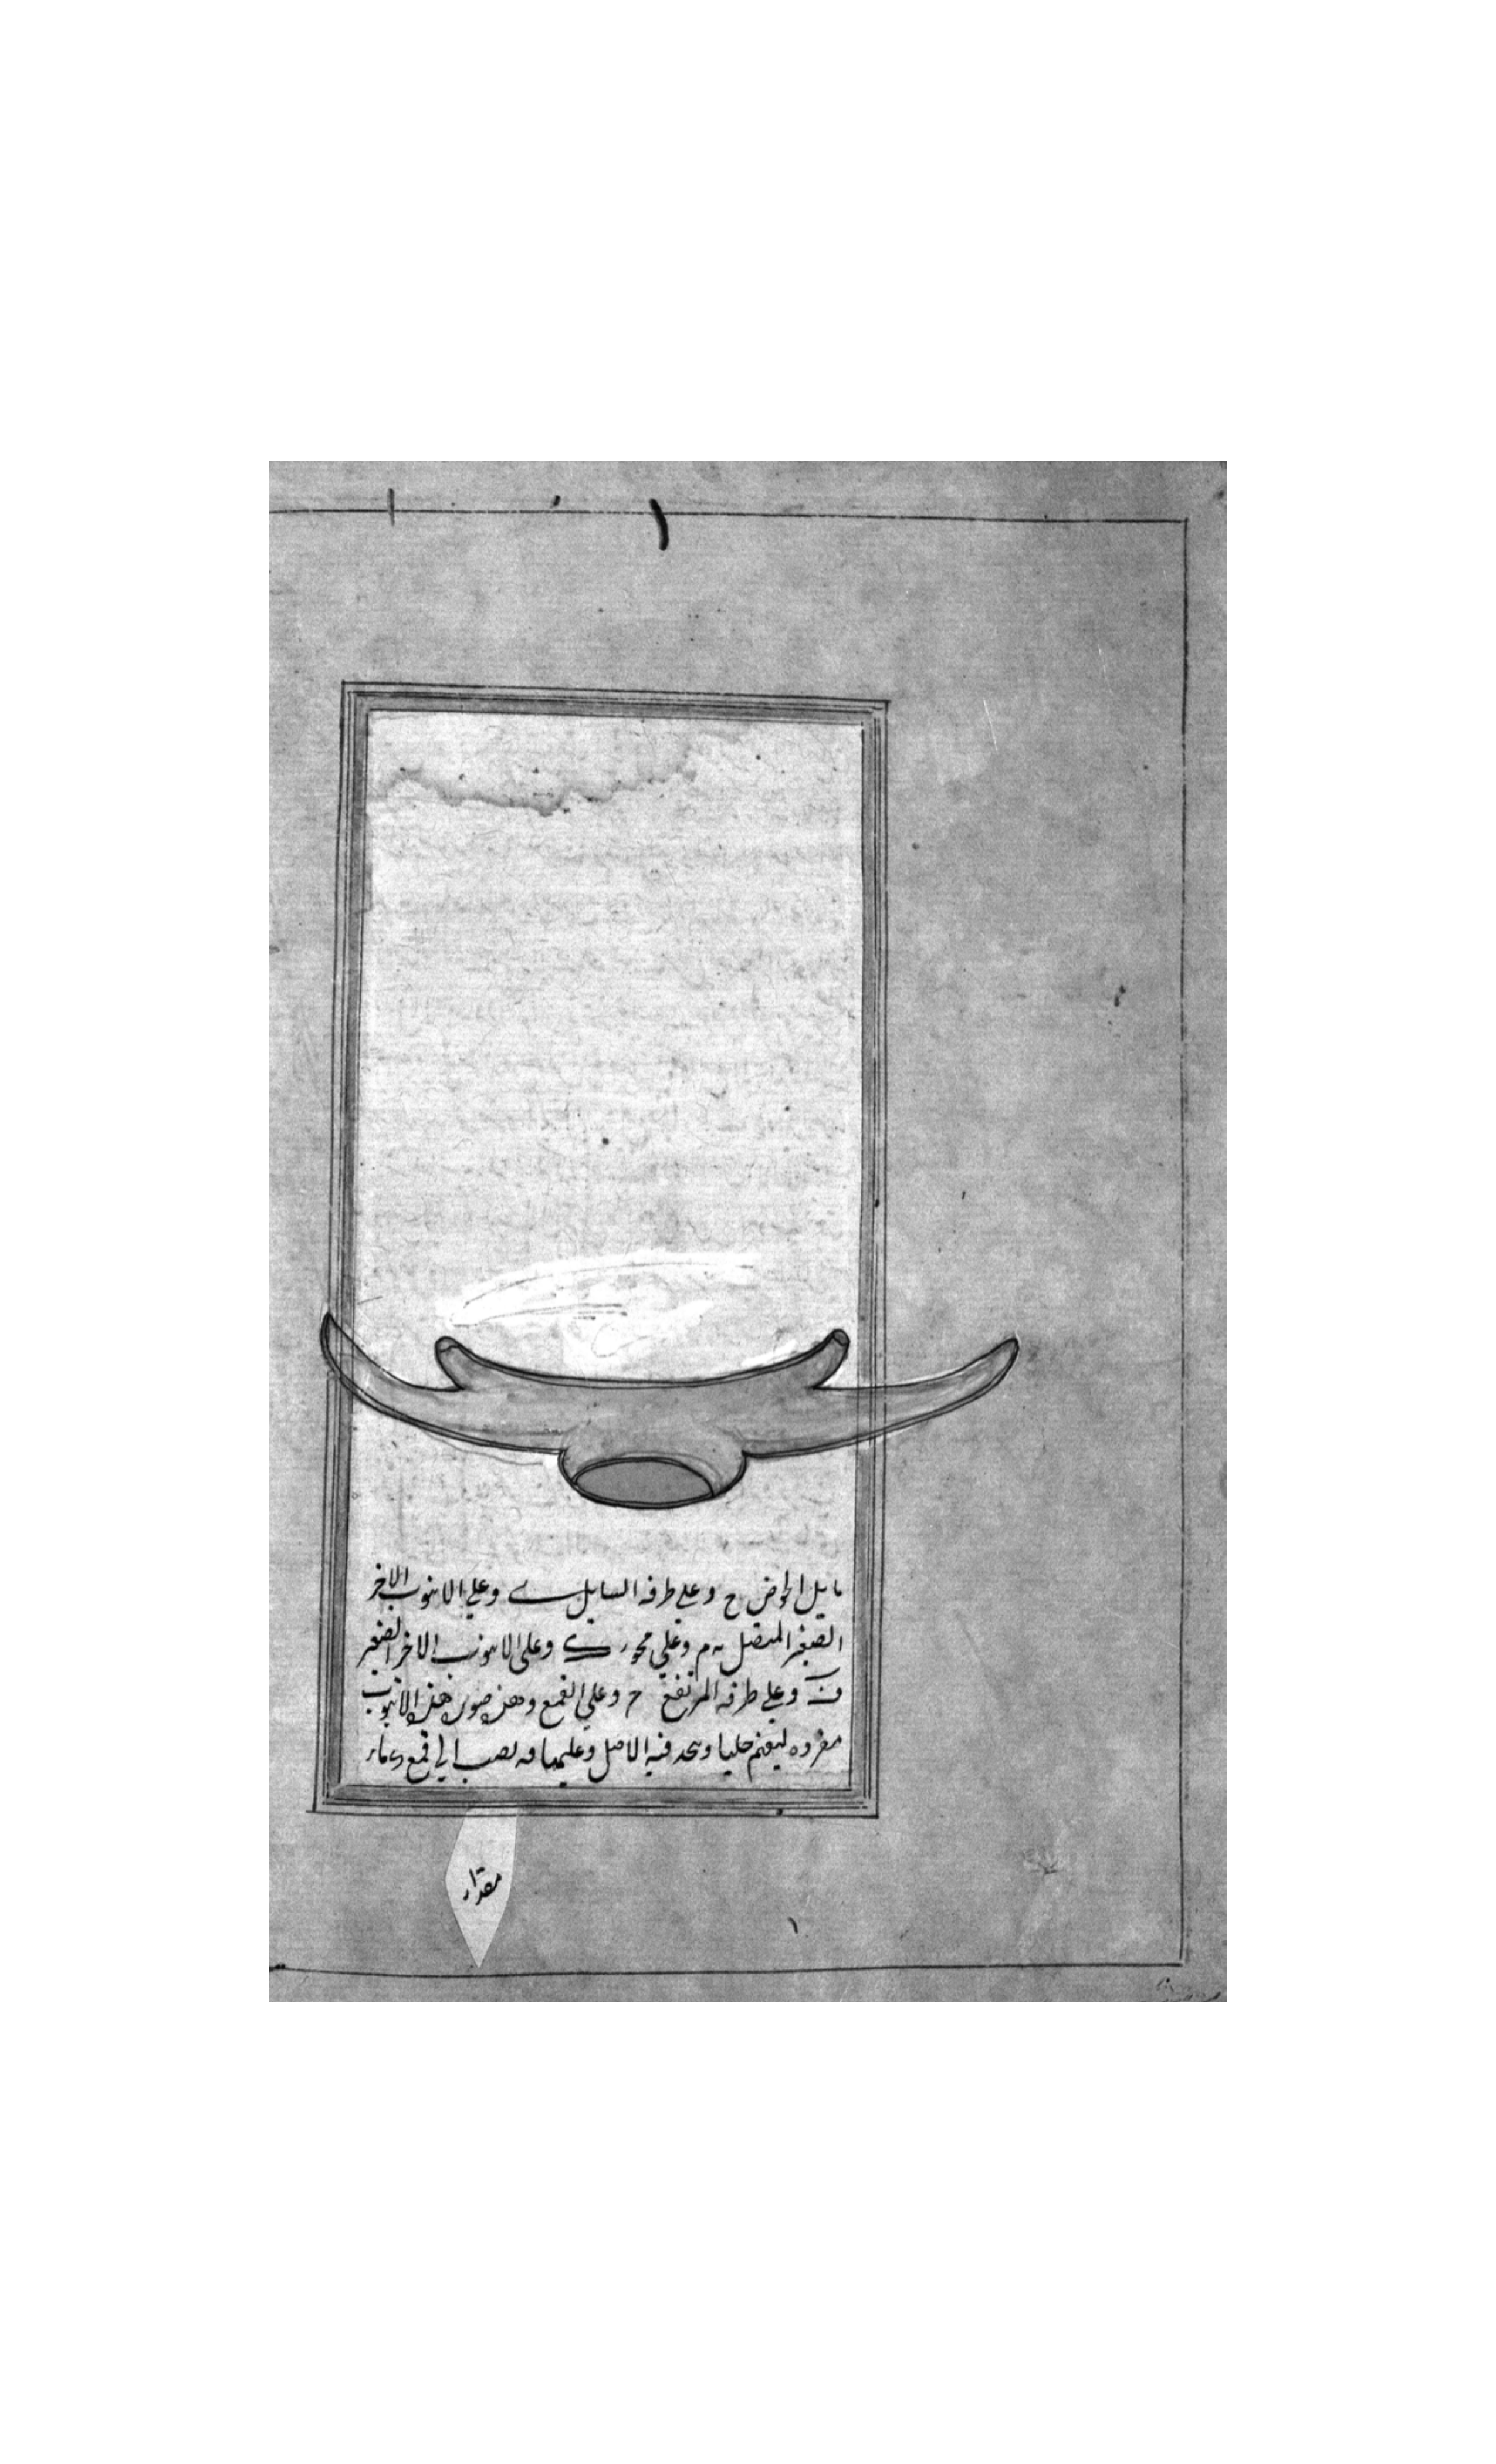 مايل الحوض ح وعلي طرفه السايل ے وعلي الانبوب الاخر
الصغير المتصل به م وعلي محوره ک وعلى الانبوب الاخر الصغير
ن وعلي طرفه المرتفع ح وعلي القمع وهذه صورة هذه الانبوب
مفرده ليفهم جليا وعليها فه يصب الي قمع
مقدار